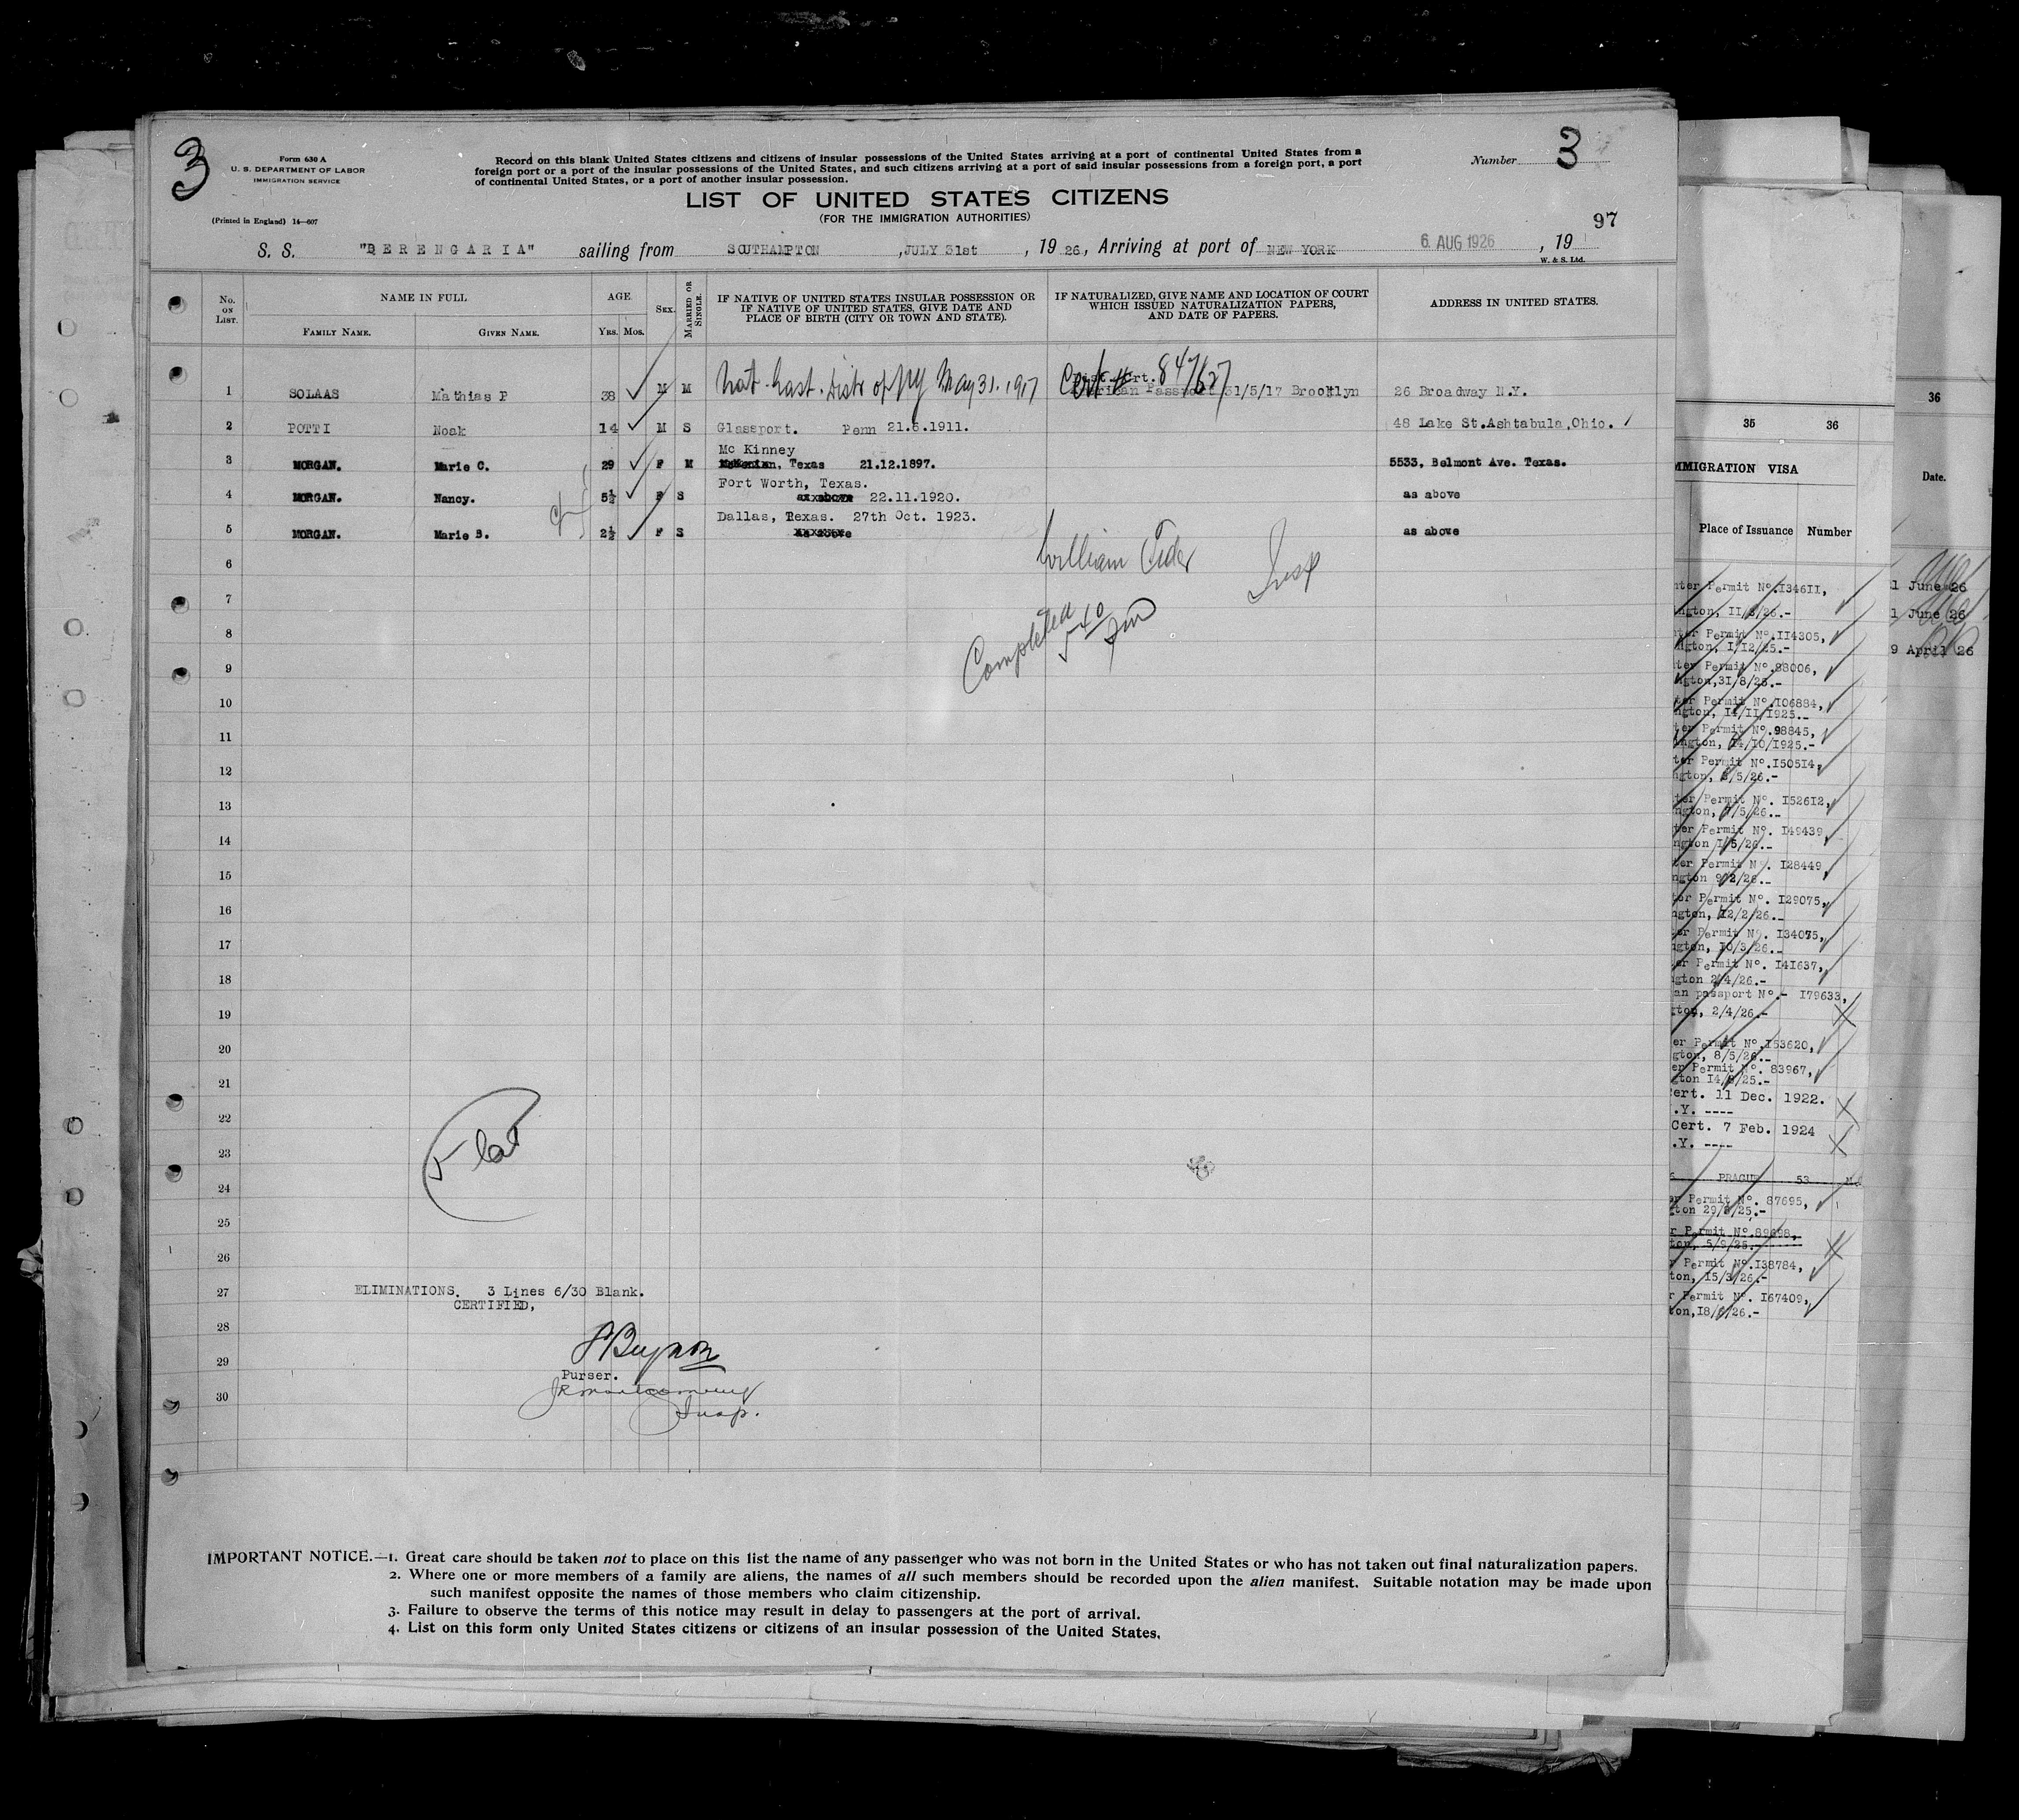 3
Form 630 A
U. S. DEPARTMENT OF LABOR
IMMIGRATION SERVICE
(Printed in England) 14—607
Record on this blank United States citizens and citizens of insular possessions of the United States arriving at a port of continental United States from a
foreign port or a port of the insular possessions of the United States, and such citizens arriving at a port of said insular possessions from a foreign port, a port
of continental United States, or a port of another insular possession.
Number 3
LIST OF UNITED STATES CITIZENS
(FOR THE IMMIGRATION AUTHORITIES)
97
S. S. "BERENGARIA" sailing from SOUTHAMPTON ,JULY 31st , 19 26, Arriving at port of NEW YORK 6. AUG 1926 , 19
W. & S. Ltd.
No. ON LIST. NAME IN FULL AGE SEX. MARRIED OR SINGLE. IF NATIVE OF UNITED STATES INSULAR POSSESSION OR IF NATIVE OF UNITED STATES, GIVE DATE AND PLACE OF BIRTH (CITY OR TOWN AND STATE). IF NATURALIZED, GIVE NAME AND LOCATION OF COURT WHICH ISSUED NATURALIZATION PAPERS, AND DATE OF PAPERS. ADDRESS IN UNITED STATES.
FAMILY NAME. GIVEN NAME. YRS. MOS.
1 SOLAAS Mathias P 38 M M Nat. East. Distr of NY May 31. 1917 Cert # 847627 31/5/17 Brooklyn 26 Broadway N.Y.
2 POTTI Noak 14 M S Glassport. Penn 21.6.1911. 48 Lake St.Ashtabula,Ohio.
Mc Kinney
3 MORGAN. Marie C. 29 F M Texas 21.12.1897. 5533, Belmont Ave. Texas.
Fort Worth, Texas.
4 MORGAN. Nancy. 5½ F S as above 22.11.1920. as above
Dallas, Texas. 27th Oct. 1923.
5 MORGAN. Marie B. 2½ F S as above as above
6
William
Insp
7
Completed
5 40
8
9
10
11
12
13
14
15
16
17
18
19
20
21
22
23
24
25
26
27 ELIMINATIONS. 3 Lines 6/30 Blank.
CERTIFIED,
28
29
Purser.
30
Insp.
IMPORTANT NOTICE.—1. Great care should be taken not to place on this list the name of any passenger who was not born in the United States or who has not taken out final naturalization papers.
2. Where one or more members of a family are aliens, the names of all such members should be recorded upon the alien manifest. Suitable notation may be made upon
such manifest opposite the names of those members who claim citizenship.
3. Failure to observe the terms of this notice may result in delay to passengers at the port of arrival.
4. List on this form only United States citizens or citizens of an insular possession of the United States.
35 36
IMMIGRATION VISA
Place of Issuance Number
Permit No.134611,
11/3/26.-
Permit No.114305,
1/12/25.-
Permit No.88006,
31/8/25.-
Permit No.106884,
14/11/1925.-
Permit No.98845,
14/10/1925.-
Permit No.150514,
5/26.-
Permit No. 152612,
5/26.-
Permit No. 149439
5/26.-
Permit No. 128449
9/2/26.-
Permit No. 129075,
12/2/26.-
Permit No. 134075,
10/3/26.-
Permit No. 141637,
2/4/26.-
passport No.- 179633,
2/4/26.-
Permit No.153620,
8/5/26.-
Permit No. 83967,
14/8/25.-
11 Dec. 1922.
.Y. ----
Cert. 7 Feb. 1924
.Y. ----
53
Permit No. 87695,
29/8/25.-
Permit No.89698,
5/9/25.-
Permit No.138784,
15/3/26.-
Permit No. 167409,
18/6/26.-
36
Date.
1 June 26
1 June 26
9 April 26